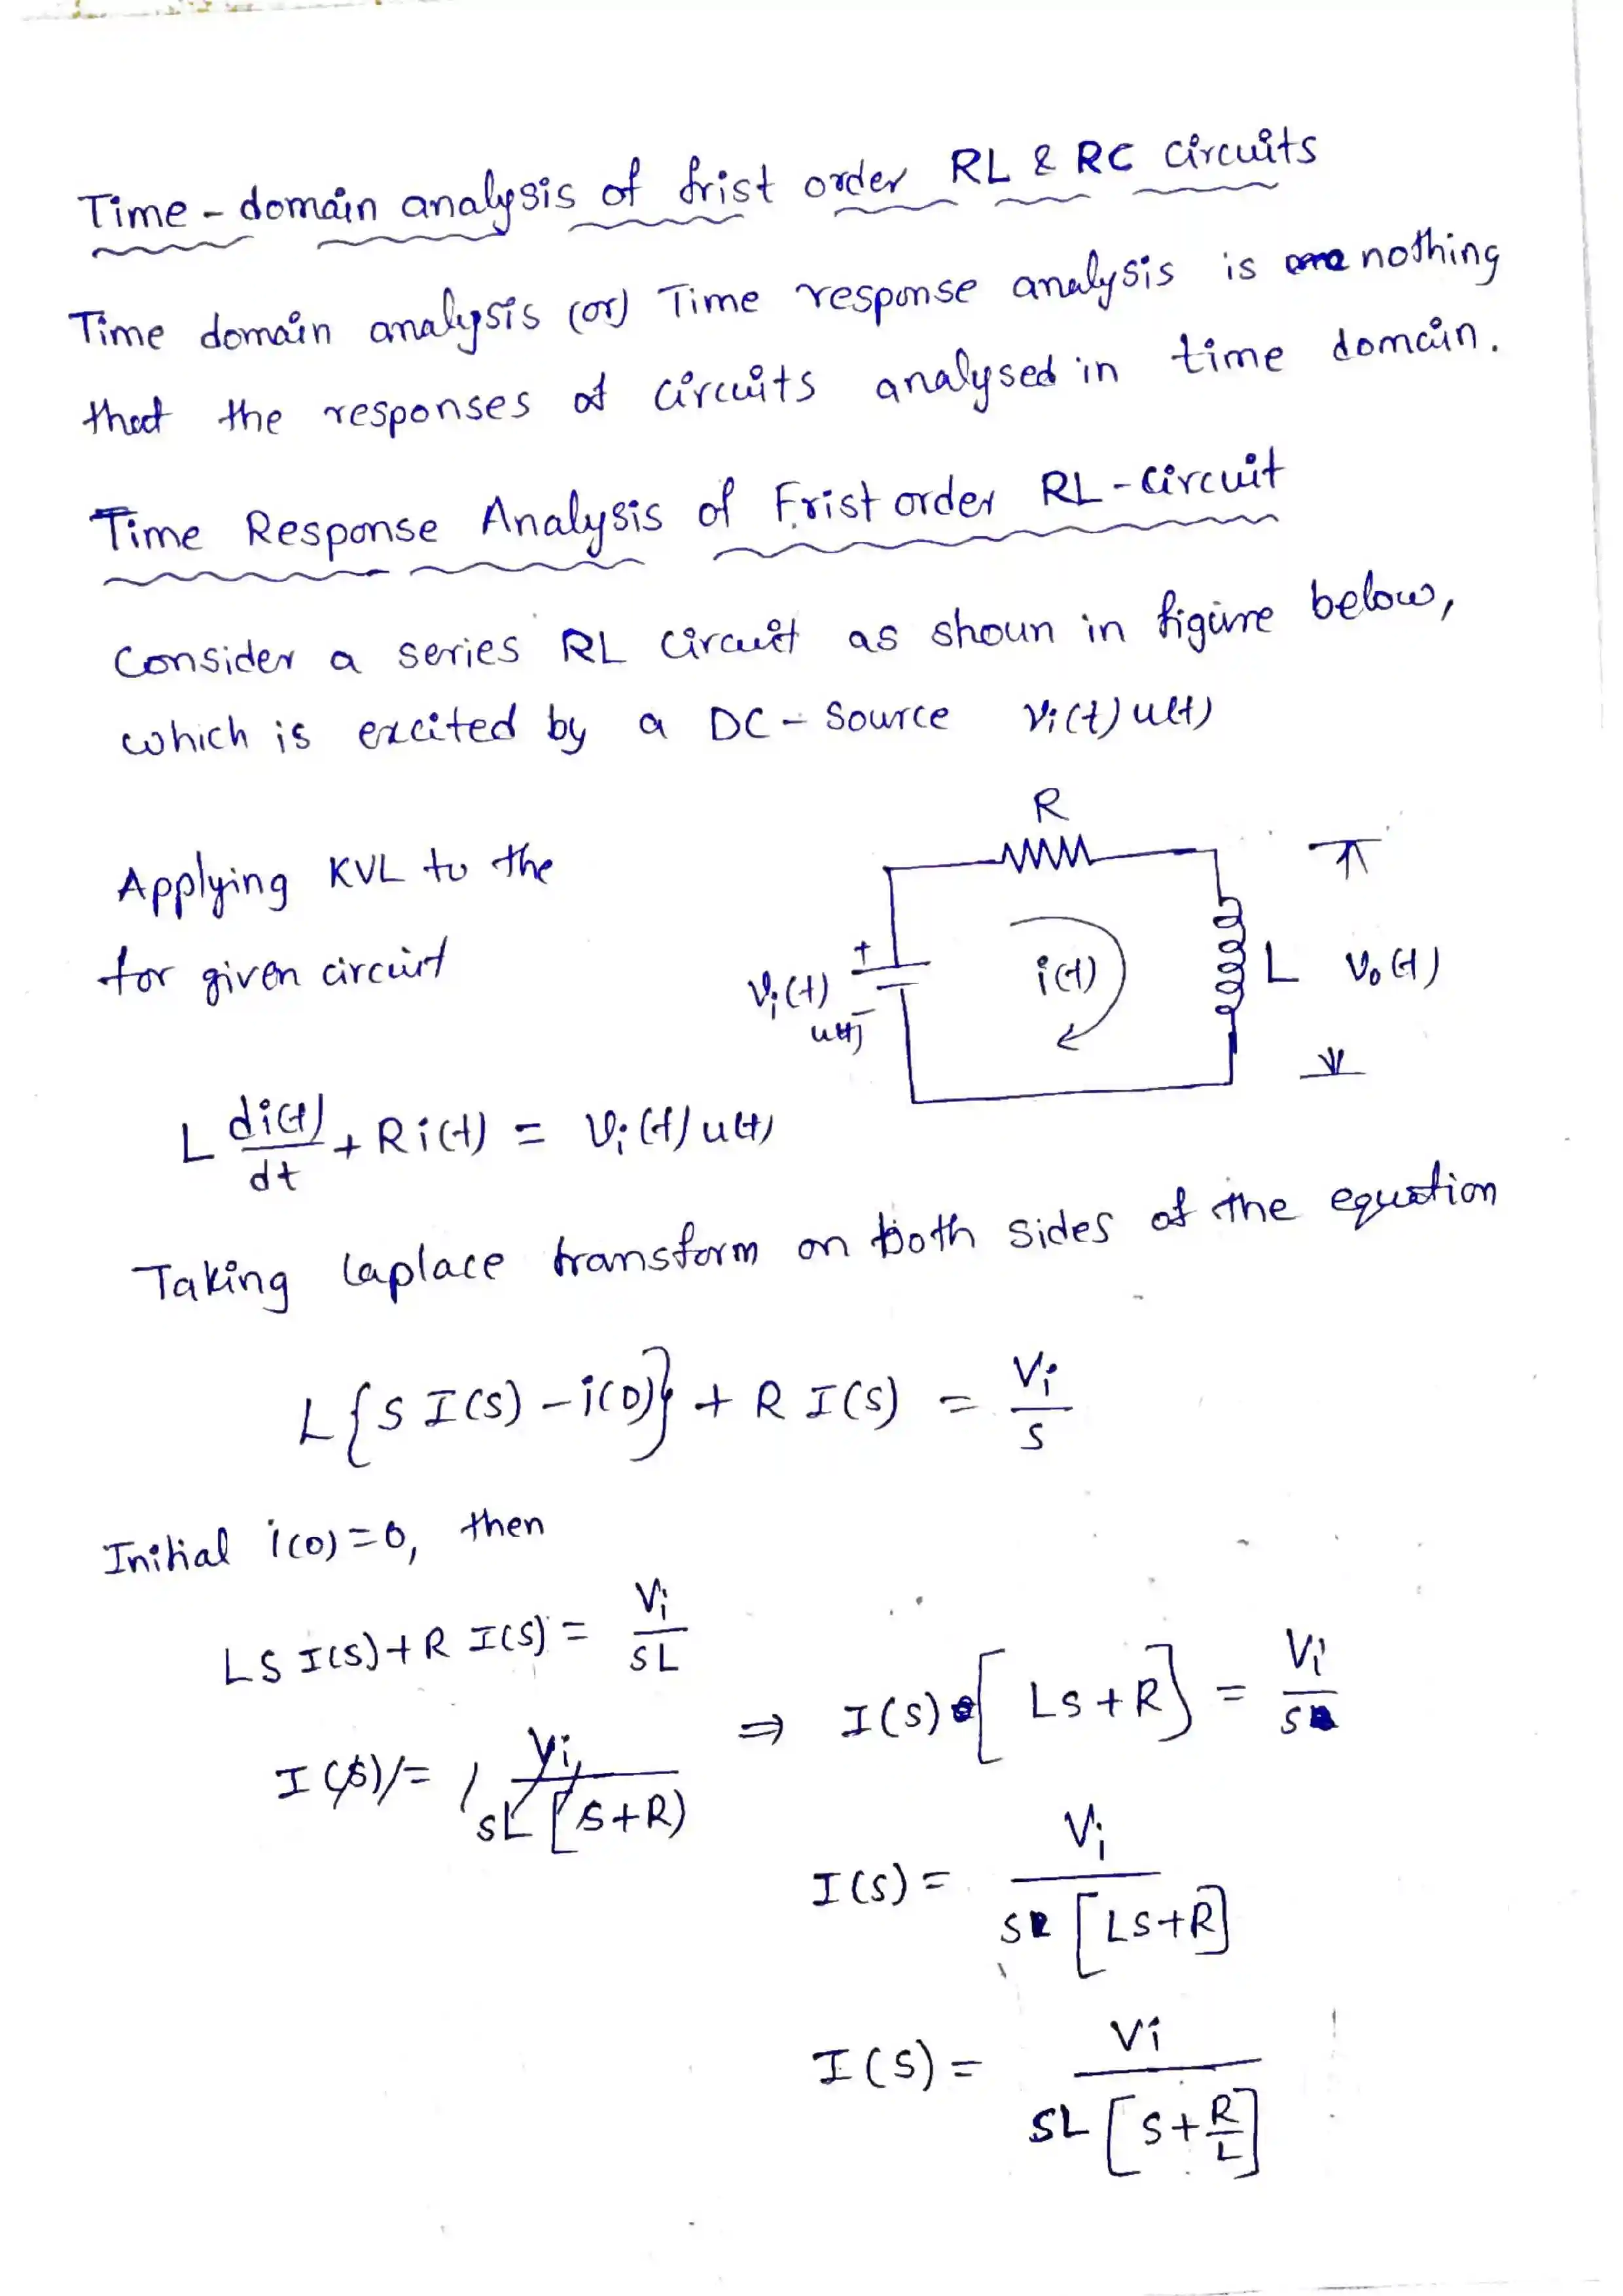 Time - domain analysis of frist order RL & RC circuits
Time domain analysis (or) Time response analysis is nothing
that the responses of circuits analysed in time domain.
Time Response Analysis of Frist order RL - circuit
Consider a series RL circuit as shoun in figure below,
which is excited by a DC - Source Vi(t) u(t)
R
Applying KVL to the
for given circuit
+
Vi(t)
u(t)
-
i(t)
L
Vo(t)
L di(t)/dt + R i(t) = Vi(t) u(t)
Taking laplace transform on both sides of the equation
L{S I(S) - i(0)} + R I(S) = Vi/S
Initial i(0) = 0, then
LS I(S) + R I(S) = Vi/SL
⇒ I(S) [LS + R] = Vi/S
I(S) = Vi/SL [S+R)
I(S) = Vi/S [LS+R]
I(S) = Vi/SL [S + R/L]